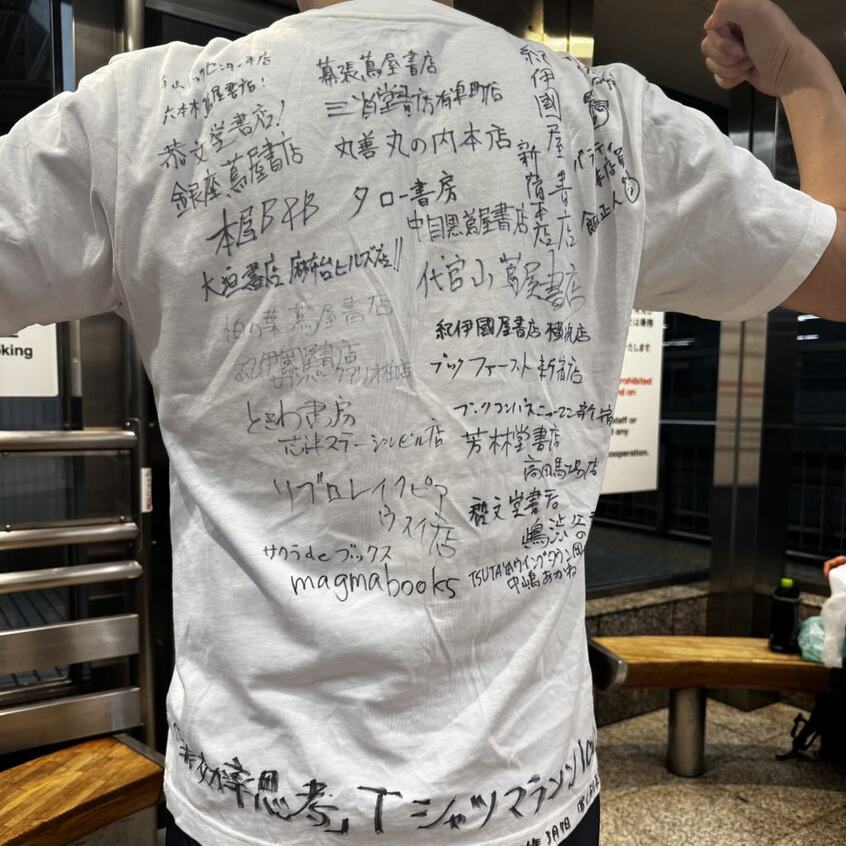 六本木蔦屋書店!
恭文堂書店!
銀座蔦屋書店
本屋B&B
大垣書店 麻布台ヒルズ店!!
柏の葉 蔦屋書店
紀伊國屋書店
ときわ書房
志津ステーションビル店
リブロレイクピア
ウスイ店
サクラdeブックス
magmabooks
幕張蔦屋書店
三省堂書店有楽町店
丸善 丸の内本店
タロー書房
中目黒蔦屋書店
代官山 蔦屋書店
紀伊國屋書店
ブックファースト新宿店
ブックコンパスニューマン新宿店
芳林堂書店
高田馬場店
啓文堂書店
渋谷
TSUTAYAウイングタウン岡
中嶋あかね
紀伊國屋書店
新宿本店
思考」Tシャツマラソン
3月7日
oking
rohibited
ed on
staff or
t any
ooperation.